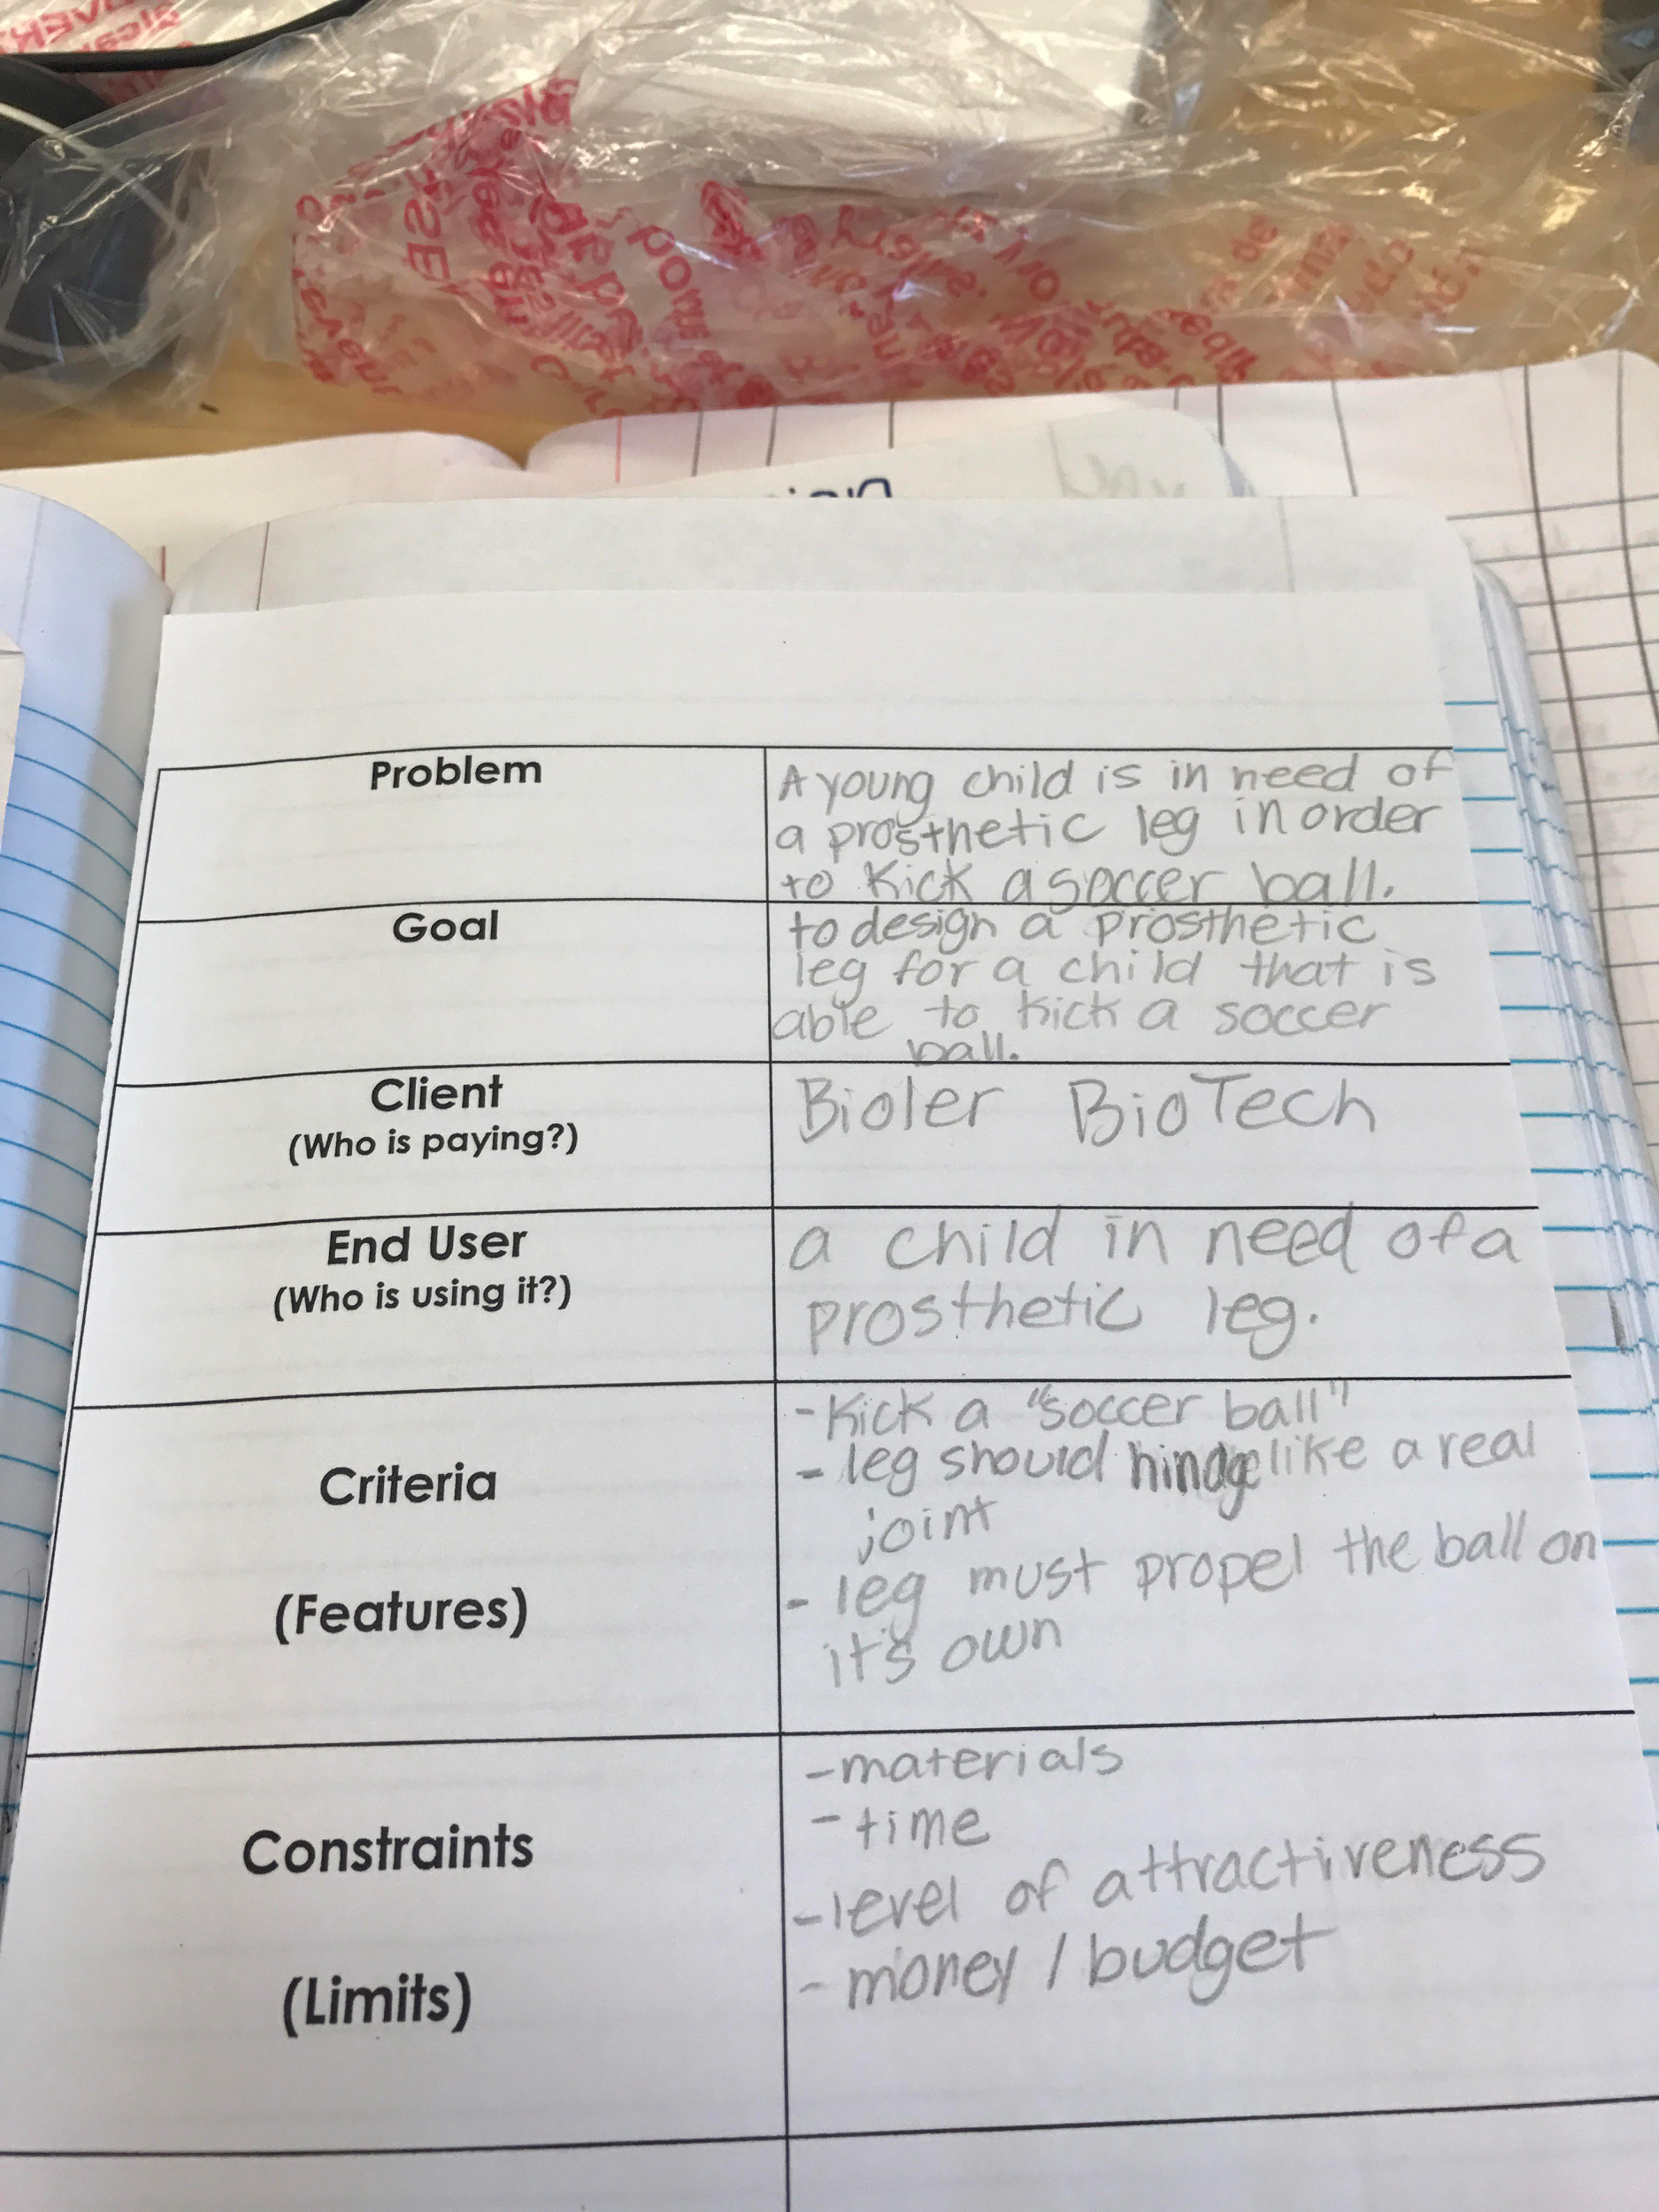 Problem
A young child is in need of
a prosthetic leg in order
to kick a soccer ball.
Goal
to design a prosthetic
leg for a child that is
able to kick a soccer
ball.
Client
(Who is paying?)
Bioler BioTech
End User
(Who is using it?)
a child in need of a
prosthetic leg.
Criteria
(Features)
- Kick a "soccer ball"
- leg should hindge like a real
joint
- leg must propel the ball on
it's own
Constraints
(Limits)
- materials
- time
- level of attractiveness
- money / budget